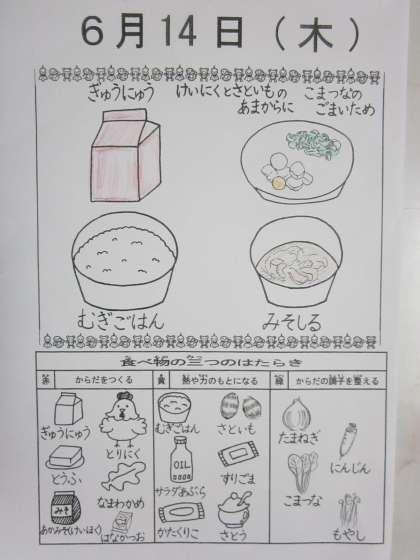 6月14日(木)
ぎゅうにゅう
けいにくとさといもの
あまからに
こまつなの
ごまいため
むぎごはん
みそしる
食べ物の三つのはたらき
赤 からだをつくる
黄 熱や力のもとになる
緑 からだの調子を整える
ぎゅうにゅう
とりにく
とうふ
なまわかめ
みそ
あかみそ(けいほく)
はなかつお
むぎごはん
さといも
OIL
サラダあぶら
すりごま
かたくりこ
さとう
たまねぎ
にんじん
こまつな
もやし